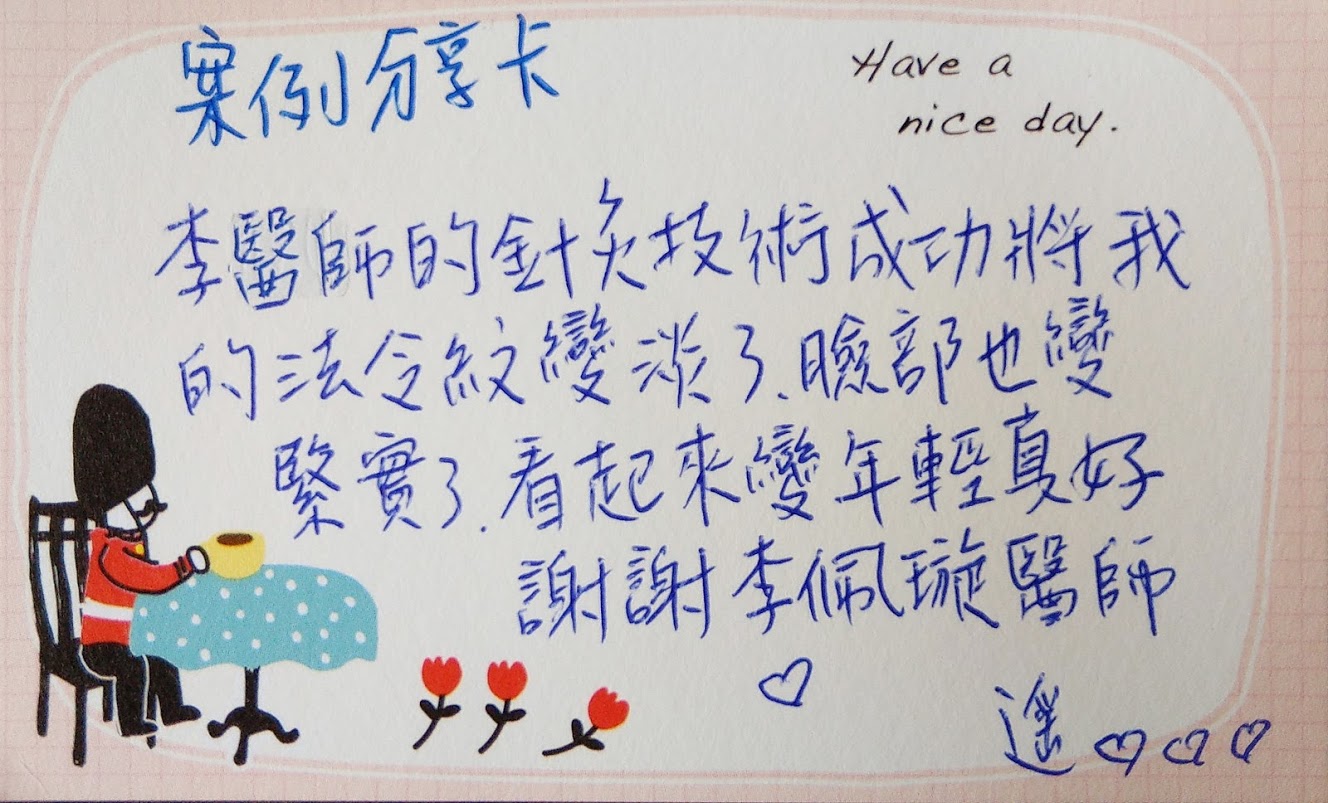 案例分享卡
Have a
nice day.
李醫師的針灸技術成功將我
的法令紋變淡了、臉部也變
緊實了、看起來變年輕真好
謝謝李佩璇醫師
♡
遙♡♡♡